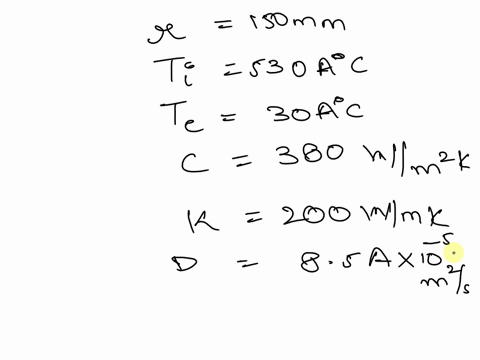 r = 150mm
Ti = 530A°C
Te = 30A°C
C = 380 W//m²K
K = 200 W/mK
D = 8.5A×10⁻⁵ m²/s